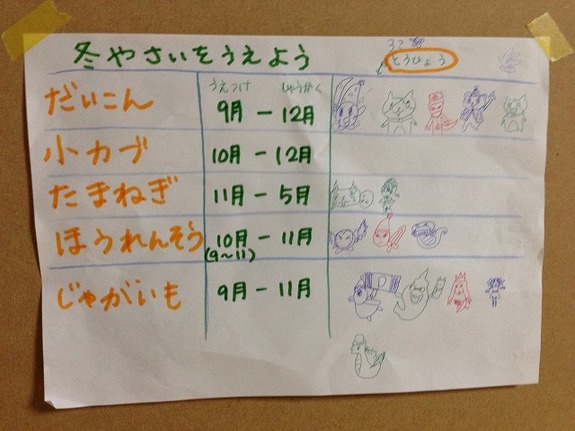 冬やさいをうえよう
とうひょう
うえつけ しゅうかく
だいこん 9月 - 12月
小カブ 10月 - 12月
たまねぎ 11月 - 5月
ほうれんそう 10月 - 11月
(9〜11)
じゃがいも 9月 - 11月